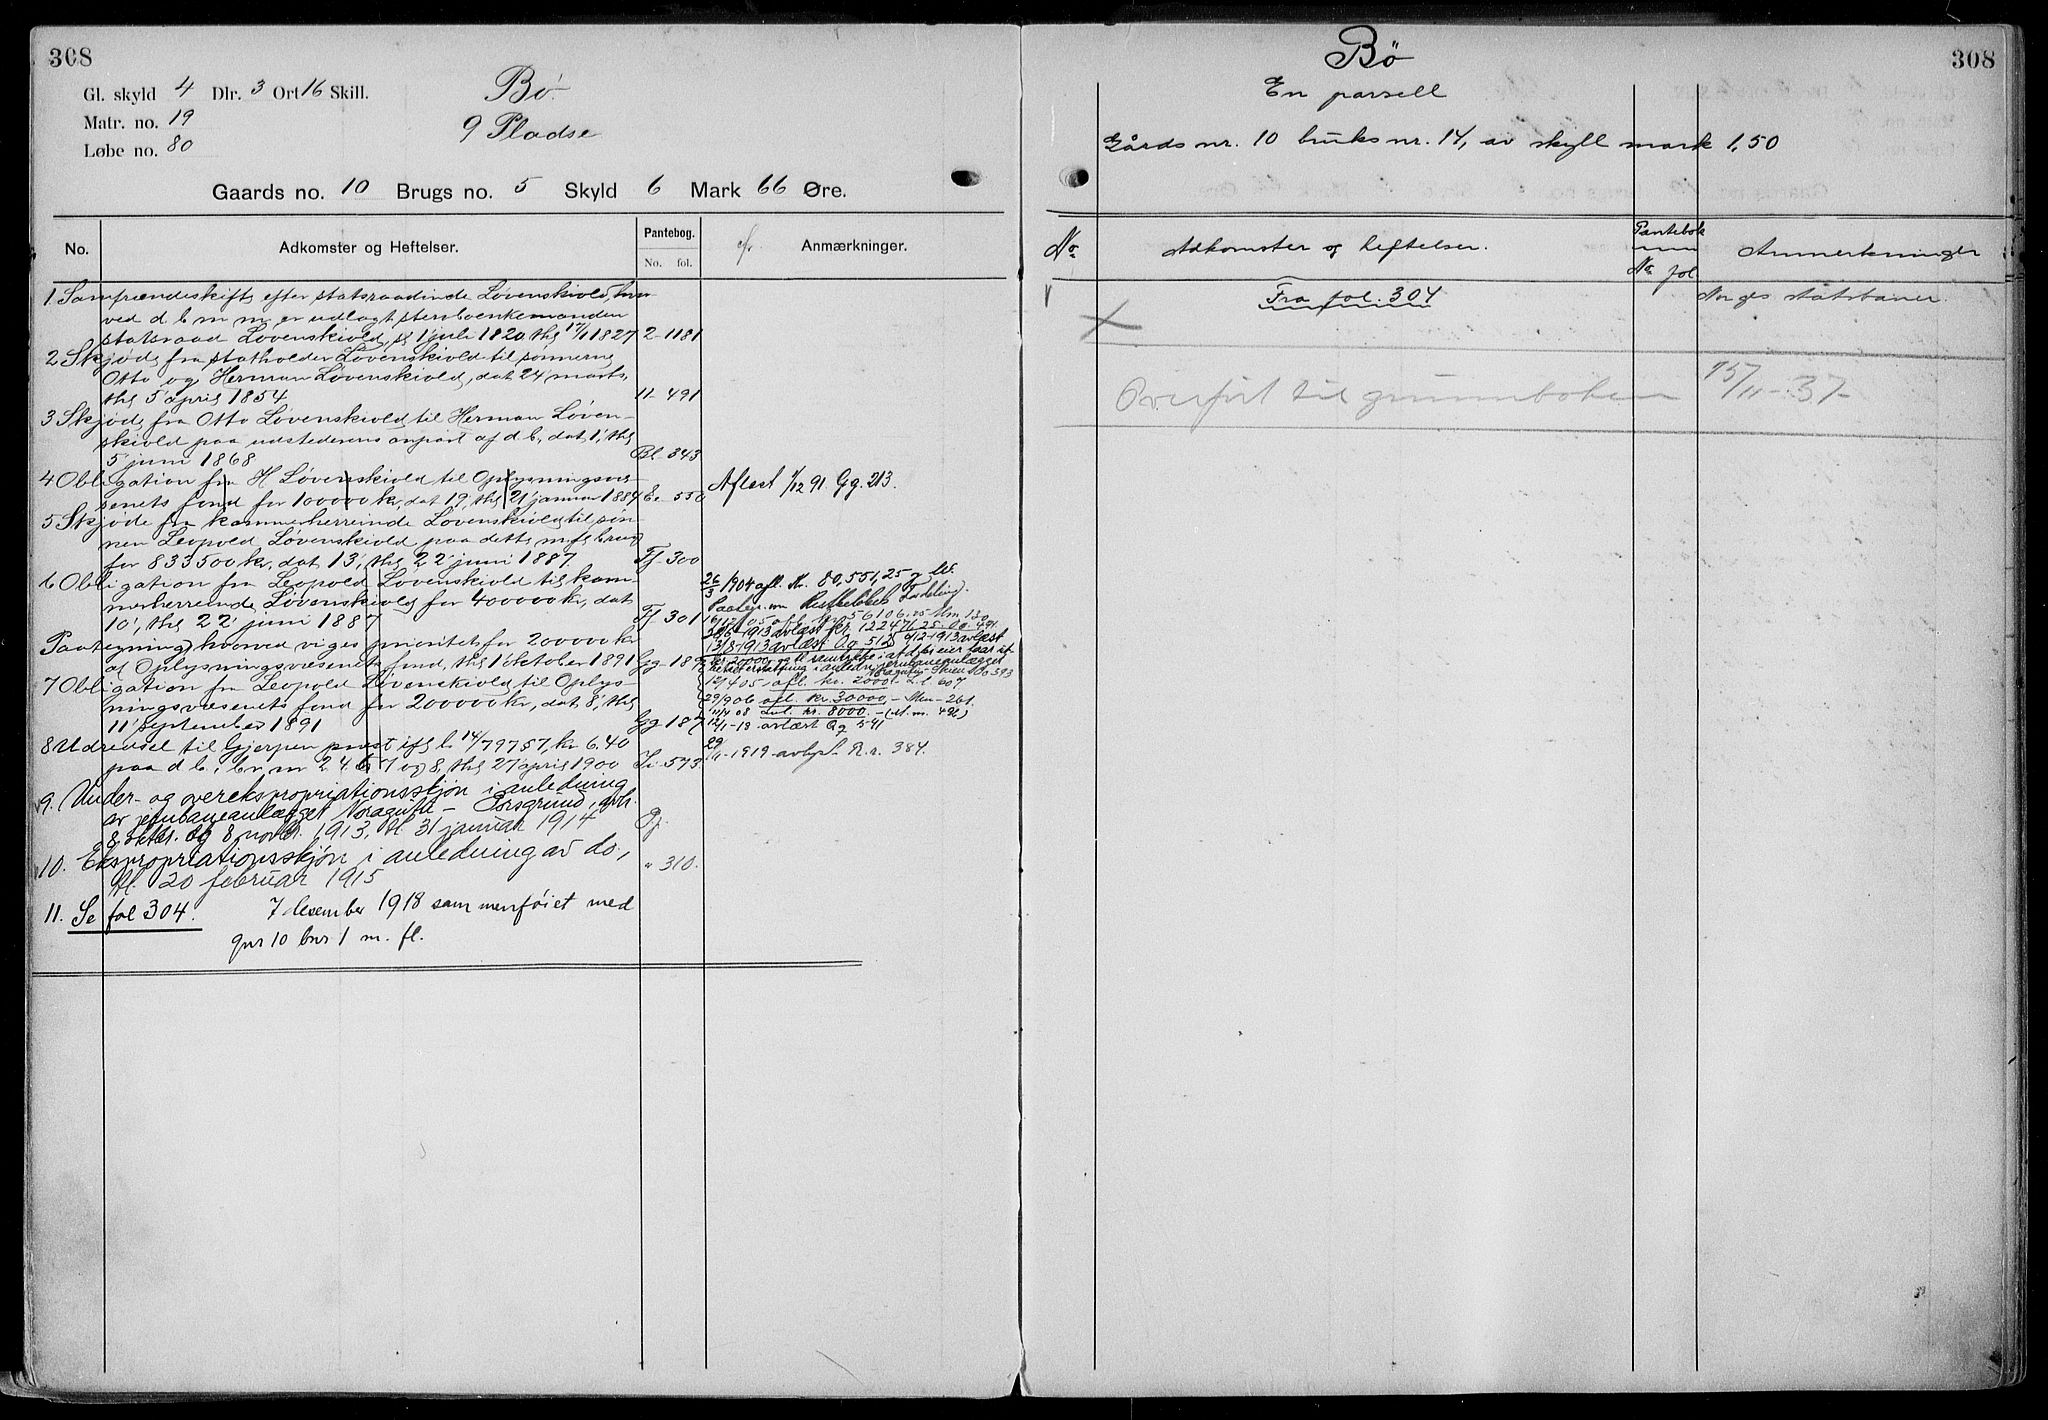 308
Gl. skyld 4 Dlr. 3 Ort 16 Skill.
Matr. no. 19
Løbe no. 80
Bø.
9 Pladse
Gaards no. 10 Brugs no. 5 Skyld 6 Mark 66 Øre.
No. Adkomster og Heftelser. Pantebog. No. fol. Anmærkninger.
1 Samfrændeskifte efter statsraadinde Løvenskiold, hvor
ved d b m m er udlagt sterboenkemanden
statsraad Løvenskiold, 1 juli 1820, thl 17/11 1827 2- 1181
2 Skjøde fra statholder Løvenskiold til sønnerne
Otto og Herman Løvenskiold, dat 24 marts,
thl 5 april 1854 11- 491
3 Skjøde fra Otto Løvenskiold til Herman Løven-
skiold paa udstederens anpart af d b, dat 1', thl
5 juni 1868 Bl- 343
4 Obligation fra H Løvenskiold til Oplysningsvæ-
senets fond for 100000 kr, dat 19, thl 21 januar 1884 Ee 550 Aflæst 1/12 91 Gg. 213.
5 Skjøde fra kammerherreinde Løvenskiold til søn-
nen Leopold Løvenskiold paa dette m fl brug
for 833500 kr, dat 13', thl 22' juni 1887 Ff- 300
6 Obligation fra Leopold Løvenskiold til kam-
merherreinde Løvenskiold for 400000 kr, dat
10', thl 22' juni 1887 Ff 301
Paategning, hvorved viges prioritet for 200000 kr
af Oplysningsvæsenets fond, thl 1 oktober 1891 Gg- 187
7 Obligation fra Leopold Løvenskiold til Oplys-
ningsvæsenets fond for 200000 kr, dat 8', thl
11' september 1891 Gg- 187
26/3 1904 afl. Kr. 80,551,25
26/5-1913 avlæst for 12247 25. Oo. 491.
13/8-1913 avlæst Oo 512 9/12-1913 avlæst
12/4 05 afl. kr. 2000
29/9 06 afl. kr. 30000 - Mm - 261.
11/4 08 kr. 8000. -
12/11-18 avlæst Qq 541
8 Udredsel til Gjerpen prest ifg b 14/7 9757, kr 6.40
paa d b, br n 2 4 5 7 og 8, thl 27 april 1900 593
29/11-1919 avlyst R.r. 384.
9. Under- og overekspropriationsskjøn i anledning
av jernbaneanlægget Noragutu - Porsgrund, avh.
8 oktbr. og 8 novbr. 1913, tl 31 januar 1914 Pp.
10. Ekspropriationsskjøn i anledning av do,
tl. 20 februar 1915 " 310.
11. Se fol 304. 7 desember 1918 sammenføiet med
gnr 10 bnr 1 m. fl.
308
Bø
En parsell
Gårds nr. 10 bruks nr. 14, av skyll mark 1,50
No Adkomster og heftelser. Pantebok No fol Anmerkninger
1 Fra fol. 304 Norges statsbaner.
Overført til grunnboken 15/11-37-